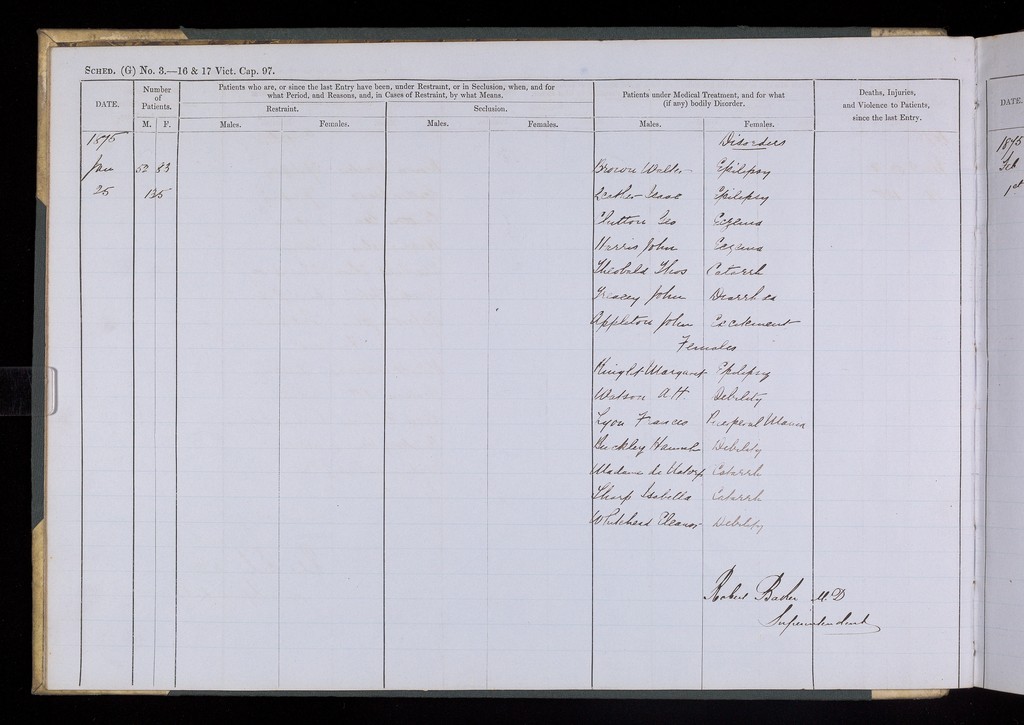 SCHED. (G) No. 3.—16 & 17 Vict. Cap. 97.
DATE.
Number of Patients.
M. F.
Patients who are, or since the last Entry have been, under Restraint, or in Seclusion, when, and for
what Period, and Reasons, and, in Cases of Restraint, by what Means.
Restraint.
Seclusion.
Males. Females. Males. Females.
Patients under Medical Treatment, and for what
(if any) bodily Disorder.
Males. Females.
Deaths, Injuries,
and Violence to Patients,
since the last Entry.
1875 Disorders
Jan 52 83 Brown Walter Epilepsy
25 135 Leather Isaac Epilepsy
Clutton Geo Eczema
Harris John Eczema
Theobald Thos Catarrh
Treacey John Diarrhea
Appleton John Excitement
Females
Knight Margaret Epilepsy
Watson A H Debility
Lyon Frances Puerperal Mania
Buckley Hannah Debility
Madame de Catarrh
Sharp Isabella Catarrh
Whitehead Eleanor Debility
Robert Baker M.D
Superintendent
DATE.
1875
Feb
1st